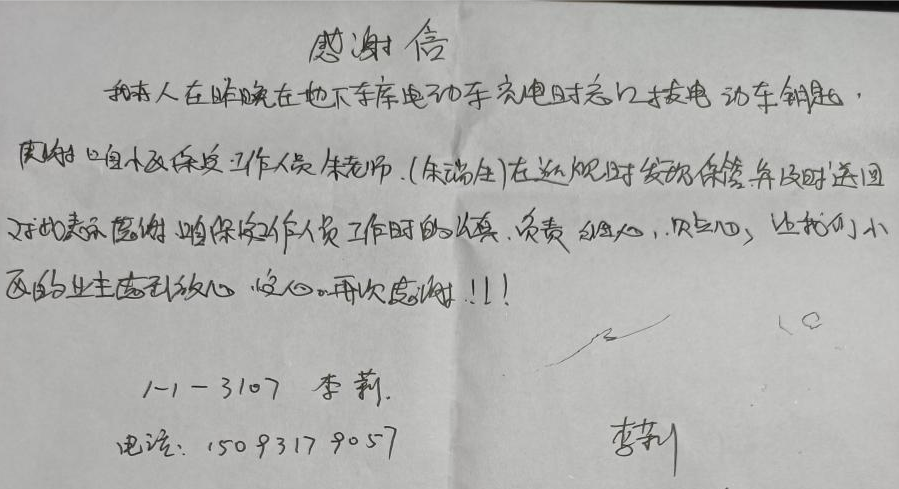 感谢信
我本人在昨晚在地下车库电动车充电时忘记拔电动车钥匙,
感谢咱小区保安工作人员朱老师.(朱瑞全)在巡视时发现保管并及时送回
对此表示感谢咱保安工作人员工作时的认真、负责 细心,贴心,让我们小
区的业主感到放心 安心。再次感谢!!!
1-1-3107 李莉.
电话:15093179057
李莉